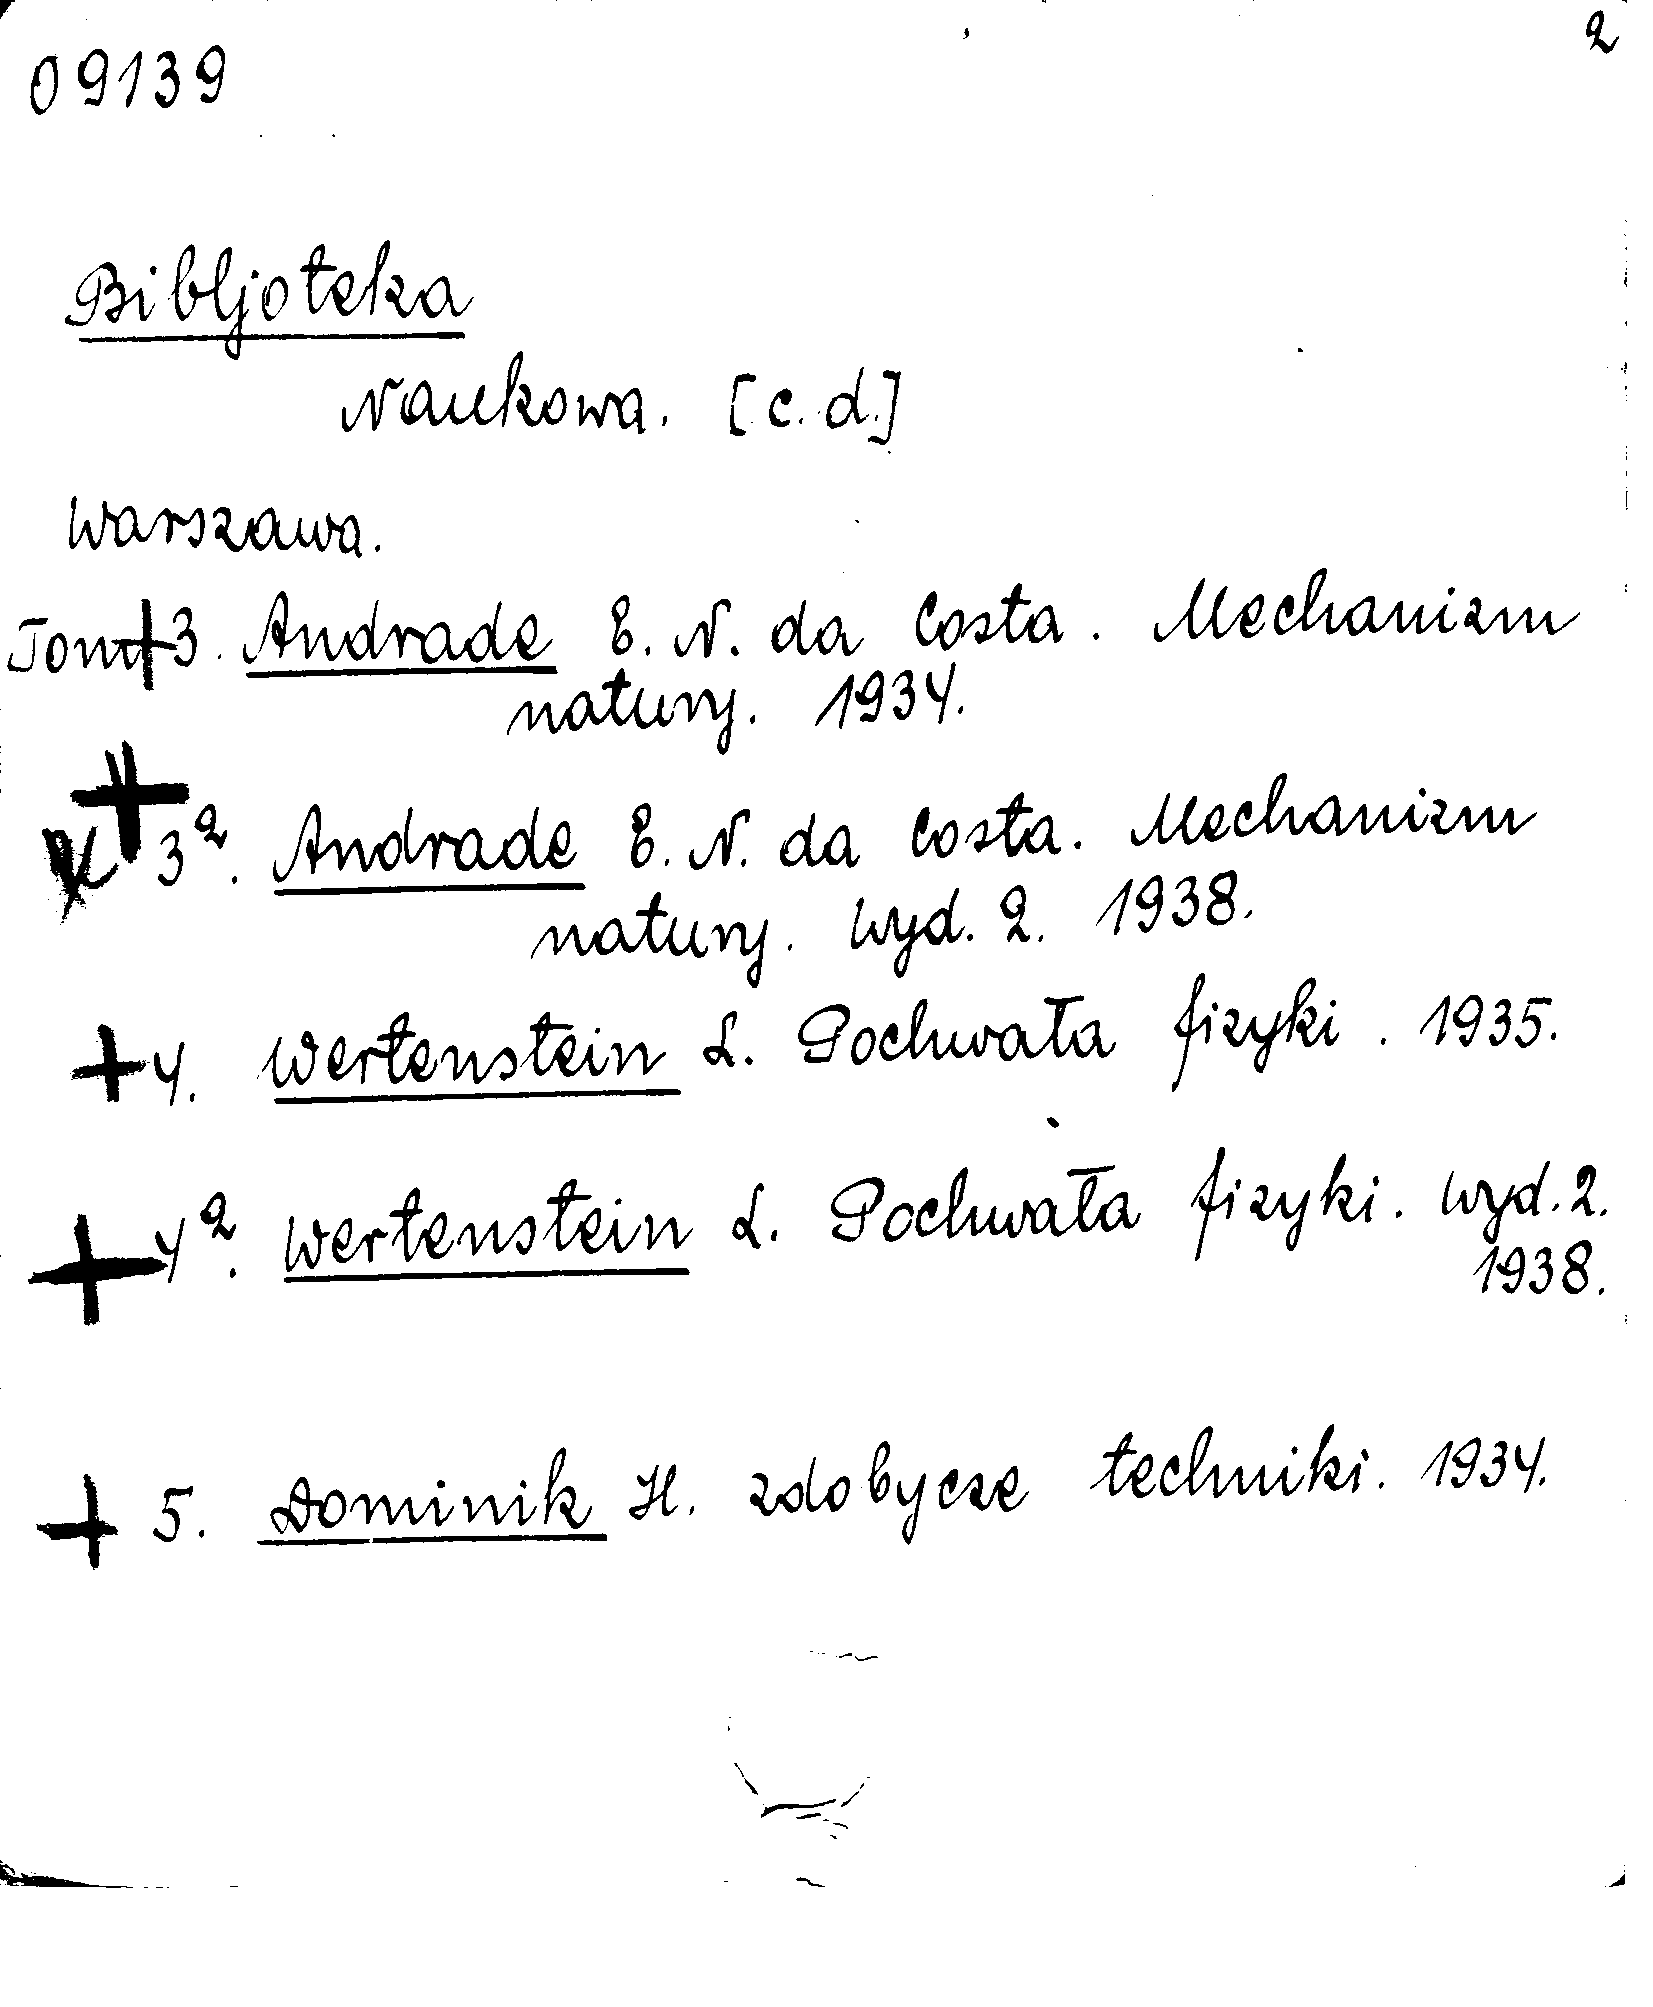 2
09139
Bibljoteka
Naukowa. [c.d.]
Warszawa.
Tom + 3. Andrade E. N. da Costa. Mechanizm
natury. 1934.
+ 3². Andrade E. N. da Costa. Mechanizm
natury. Wyd. 2. 1938.
+ 4. Wertenstein L. Pochwała fizyki. 1935.
+ 4². Wertenstein L. Pochwała fizyki. Wyd. 2.
1938.
+ 5. Dominik H. Zdobycze techniki. 1934.